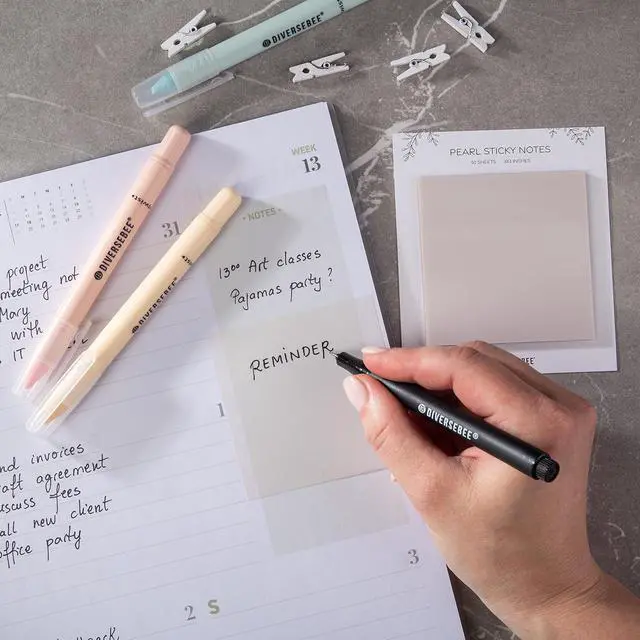 DIVERSEBEE®
WEEK
13
31
• NOTES •
13⁰⁰ Art classes
Pajamas party ?
REMINDER
PEARL STICKY NOTES
50 SHEETS 3X3 INCHES
DIVERSEBEE®
DIVERSEBEE®
DIVERSEBEE®
project
meeting not
Mary
with
IT
1
invoices
agreement
fees
new client
party
3
2 S